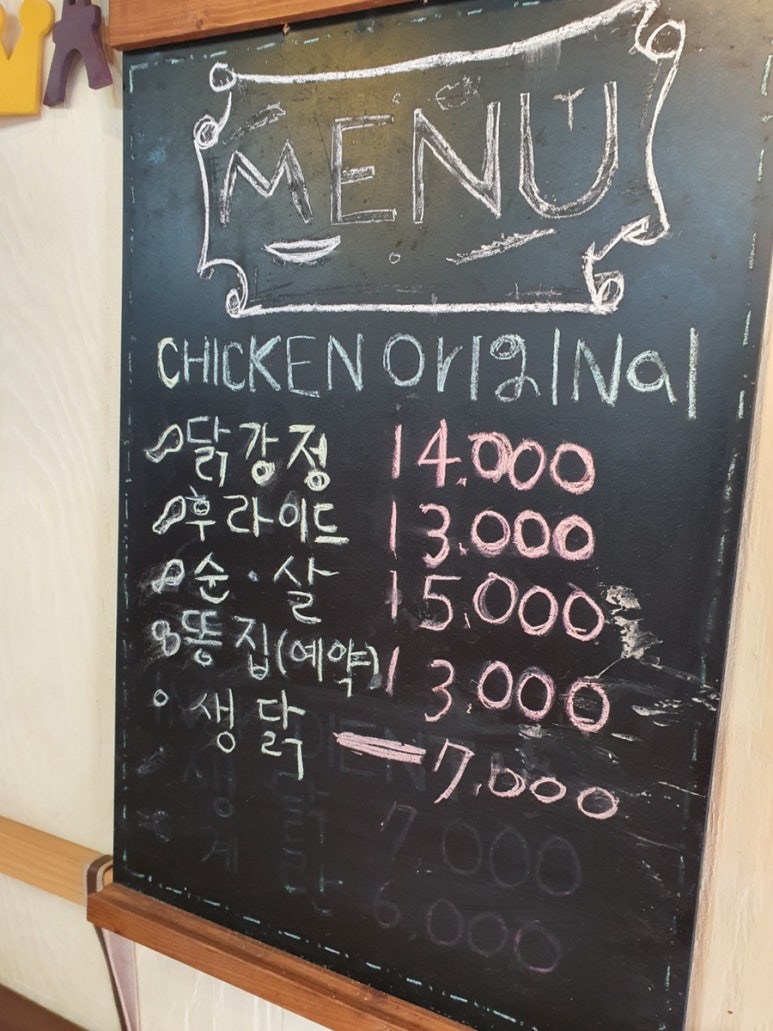 MENU
CHICKEN OrIgINal
닭강정 14.000
후라이드 13.000
순·살 15.000
똥집(예약) 13.000
생닭 7,000
생닭 7,000
계란 6,000